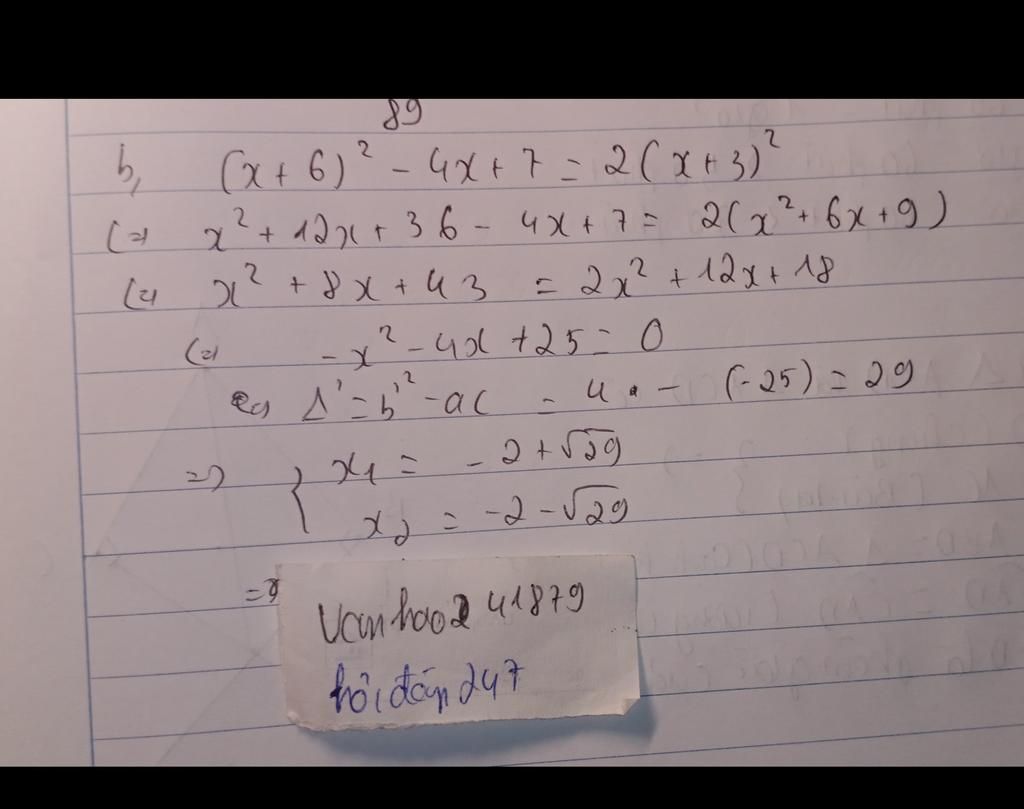 89
b, (x + 6)² - 4x + 7 = 2(x + 3)²
(=) x² + 12x + 36 - 4x + 7 = 2(x² + 6x + 9)
(=) x² + 8x + 43 = 2x² + 12x + 18
(=) -x² - 4x + 25 = 0
Δ' = b'² - ac = 4 - (-25) = 29
=) { x₁ = -2 + √29
x₂ = -2 - √29
=)
Vanhao2 41879
hỏi đáp 247